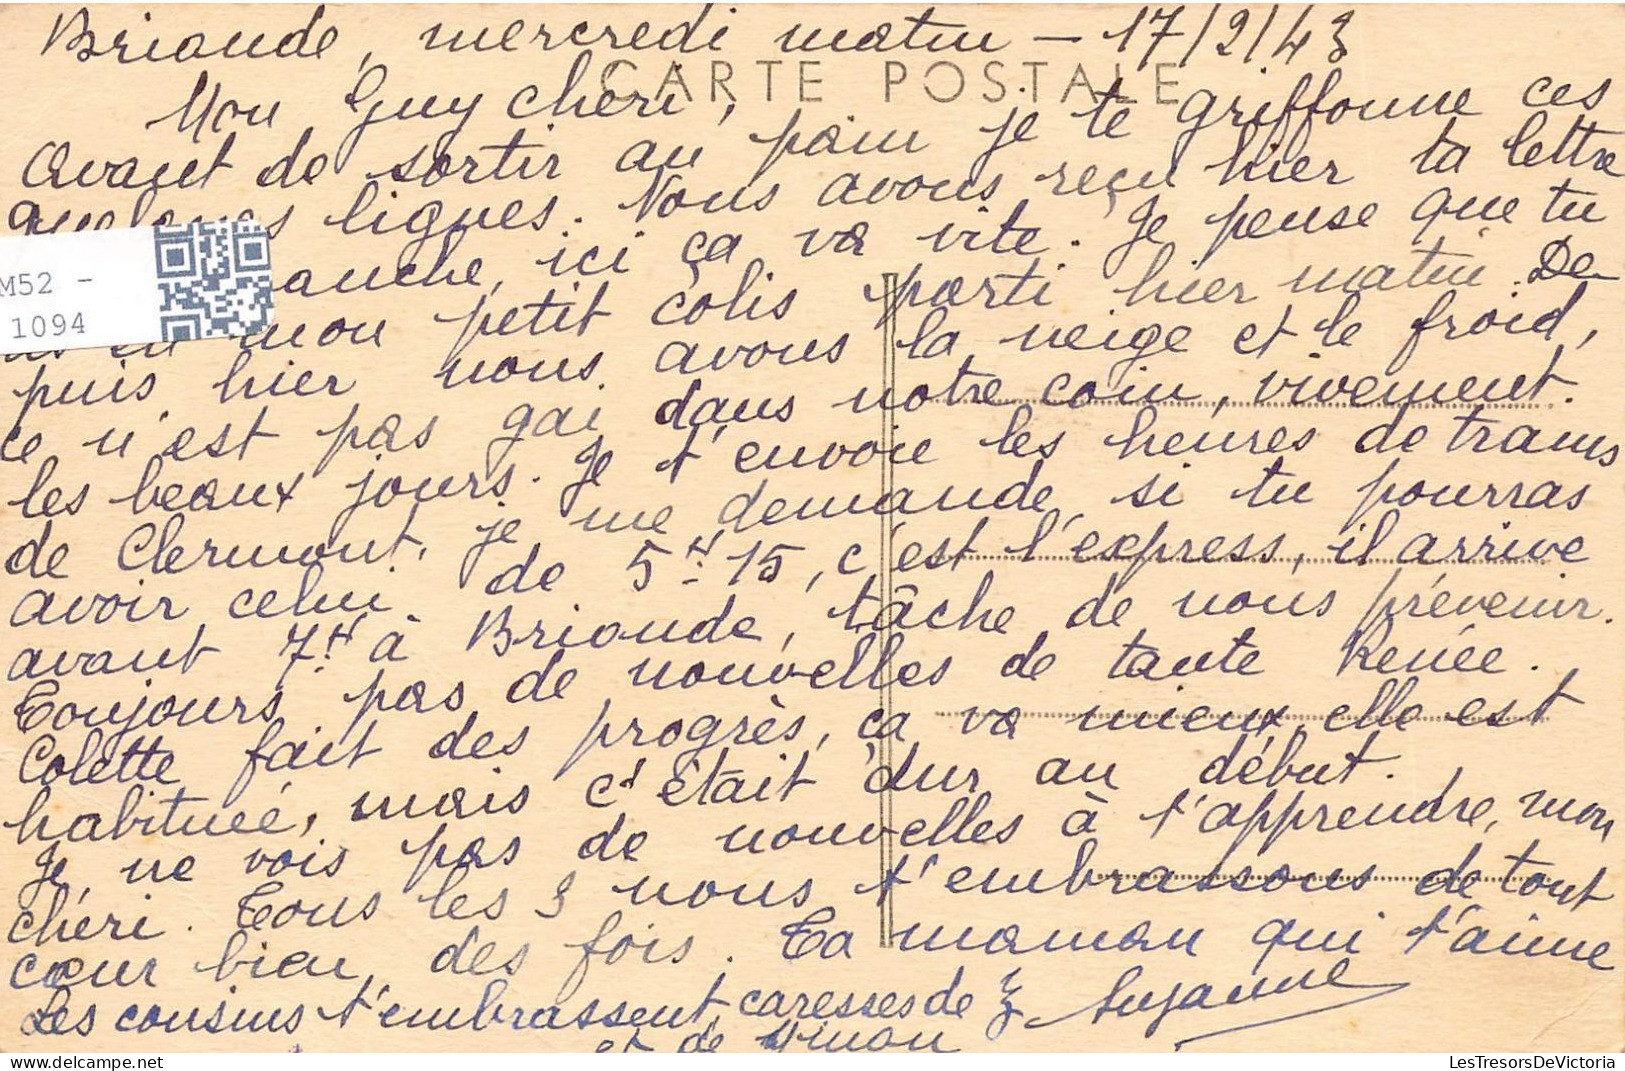 Brioude, mercredi matin - 17/2/43
CARTE POSTALE
Mon Guy chéri,
Avant de sortir au pain je te griffonne ces
quelques lignes. Nous avons reçu hier ta lettre
anche, ici ça va vite. Je pense que tu
mon petit colis parti hier matin. De-
puis hier nous avons la neige et le froid,
ce n'est pas gai dans notre coin, vivement
les beaux jours. Je t'envoie les heures de trains
de Clermont, je me demande si tu pourras
avoir celui de 5H15, c'est l'express, il arrive
avant 7H à Brioude, tâche de nous prévenir.
Toujours pas de nouvelles de tante Renée.
Colette fait des progrès, ça va mieux, elle est
habituée, mais c'était dur au début.
Je ne vois pas de nouvelles à t'apprendre, mon
chéri. Tous les 3 nous t'embrassons de tout
cœur bien des fois. Ta maman qui t'aime
Suzanne
Les cousins t'embrassent, caresses de
et de
M52 -
1094
LesTresorsDeVictoria